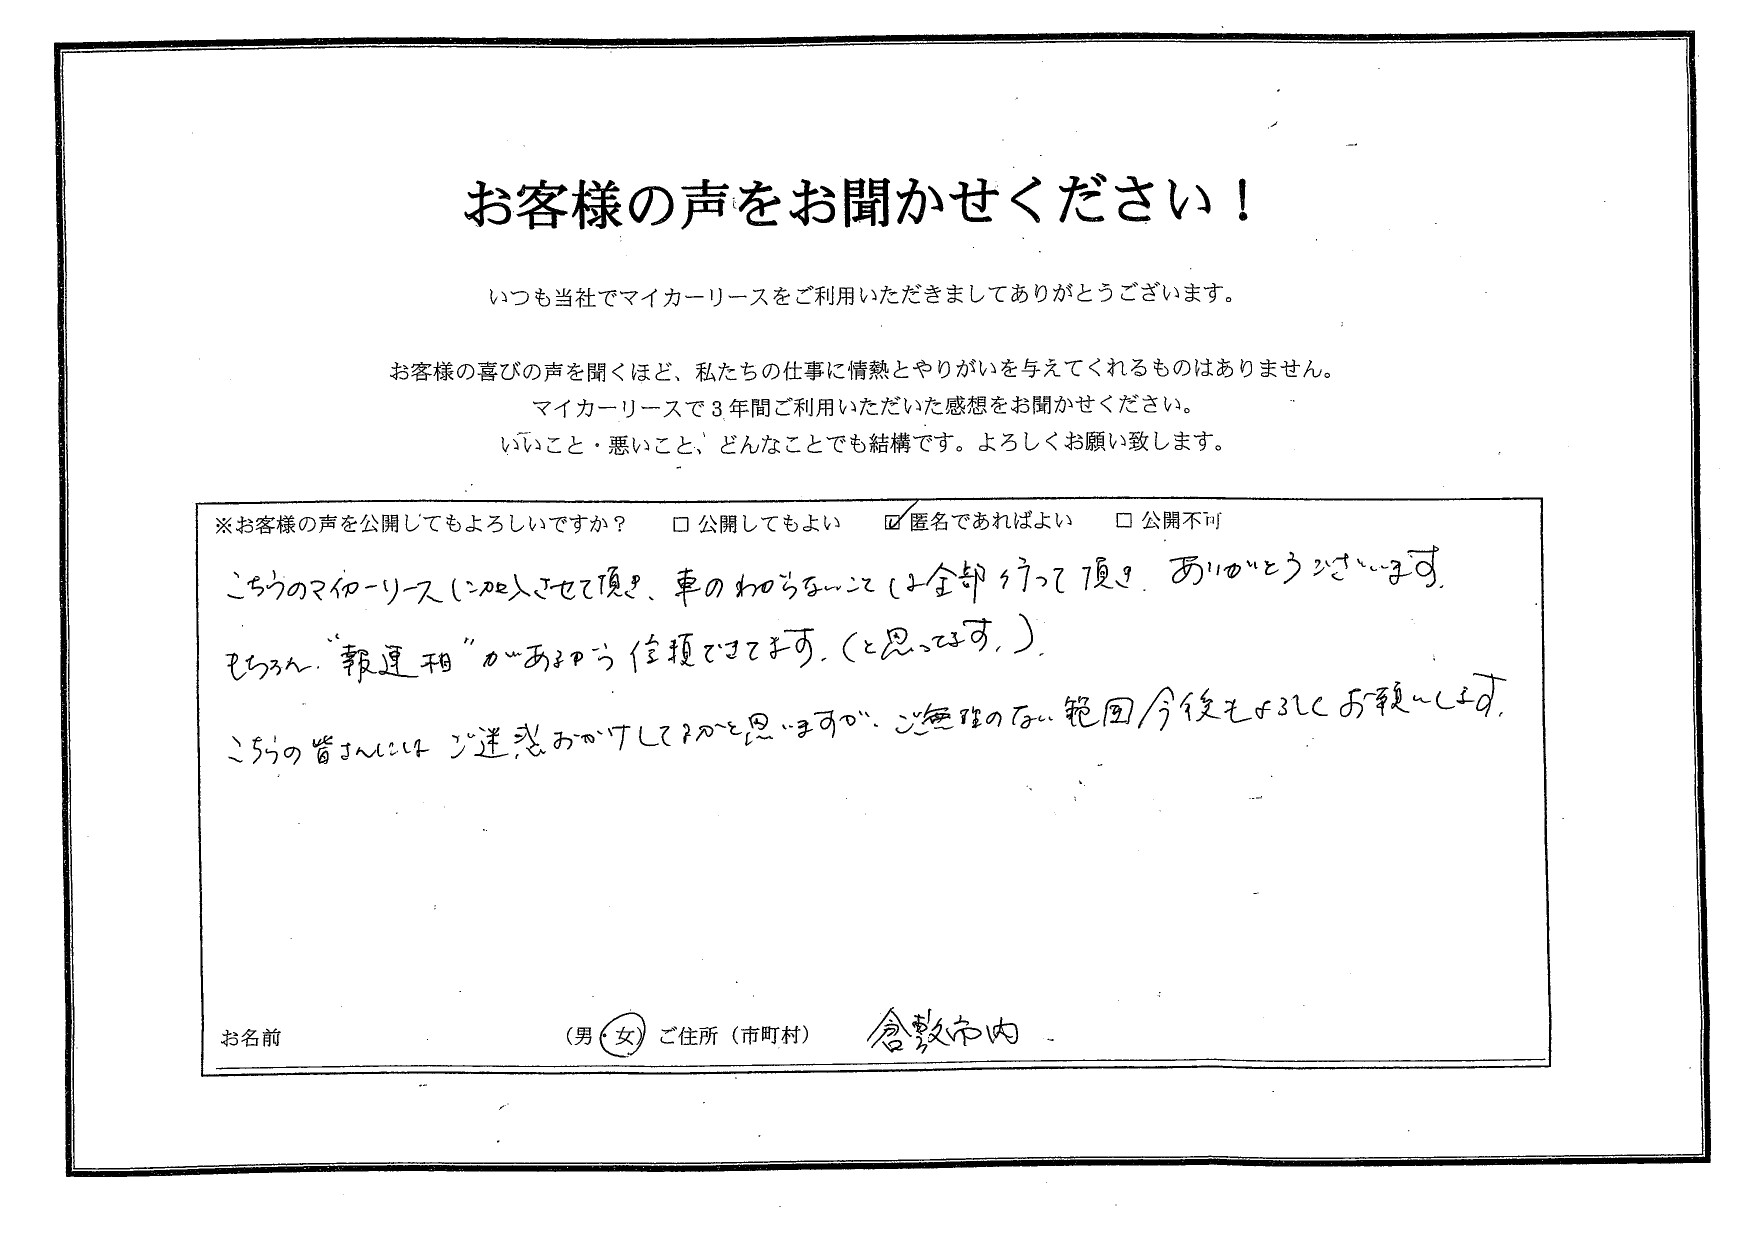 お客様の声をお聞かせください！
いつも当社でマイカーリースをご利用いただきましてありがとうございます。
お客様の喜びの声を聞くほど、私たちの仕事に情熱とやりがいを与えてくれるものはありません。
マイカーリースで3年間ご利用いただいた感想をお聞かせください。
いいこと・悪いこと、どんなことでも結構です。よろしくお願い致します。
※お客様の声を公開してもよろしいですか？ □ 公開してもよい ☑ 匿名であればよい □ 公開不可
こちらのマイカーリースに加入させて頂き、車のわからないことは全部行って頂き、ありがとうございます。
もちろん、“報連相”があるから信頼できてます。(と思ってます。)
こちらの皆さんにはご迷惑おかけしてるかと思いますが、ご無理のない範囲今後もよろしくお願いします。
お名前 （男・女） ご住所（市町村） 倉敷市内